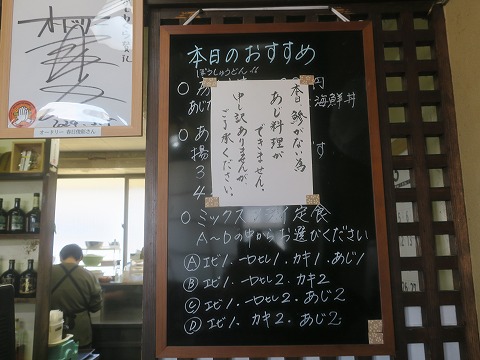 オードリー
オードリー 春日俊彰さん
本日のおすすめ
ぼうしゅうどん
円
○
あじ
海鮮丼
本日、鯵がない為
あじ料理が
できません。
申し訳ありませんが
ご了承ください。
○ あ
揚
す
3
4
○ ミックスフライ定食
A〜Dの中からお選びください
Ⓐ エビ1・一口ヒレ1・カキ1・あじ1
Ⓑ エビ1・一口ヒレ2・カキ2
Ⓒ エビ1・一口ヒレ2・あじ2
Ⓓ エビ1・カキ2・あじ2